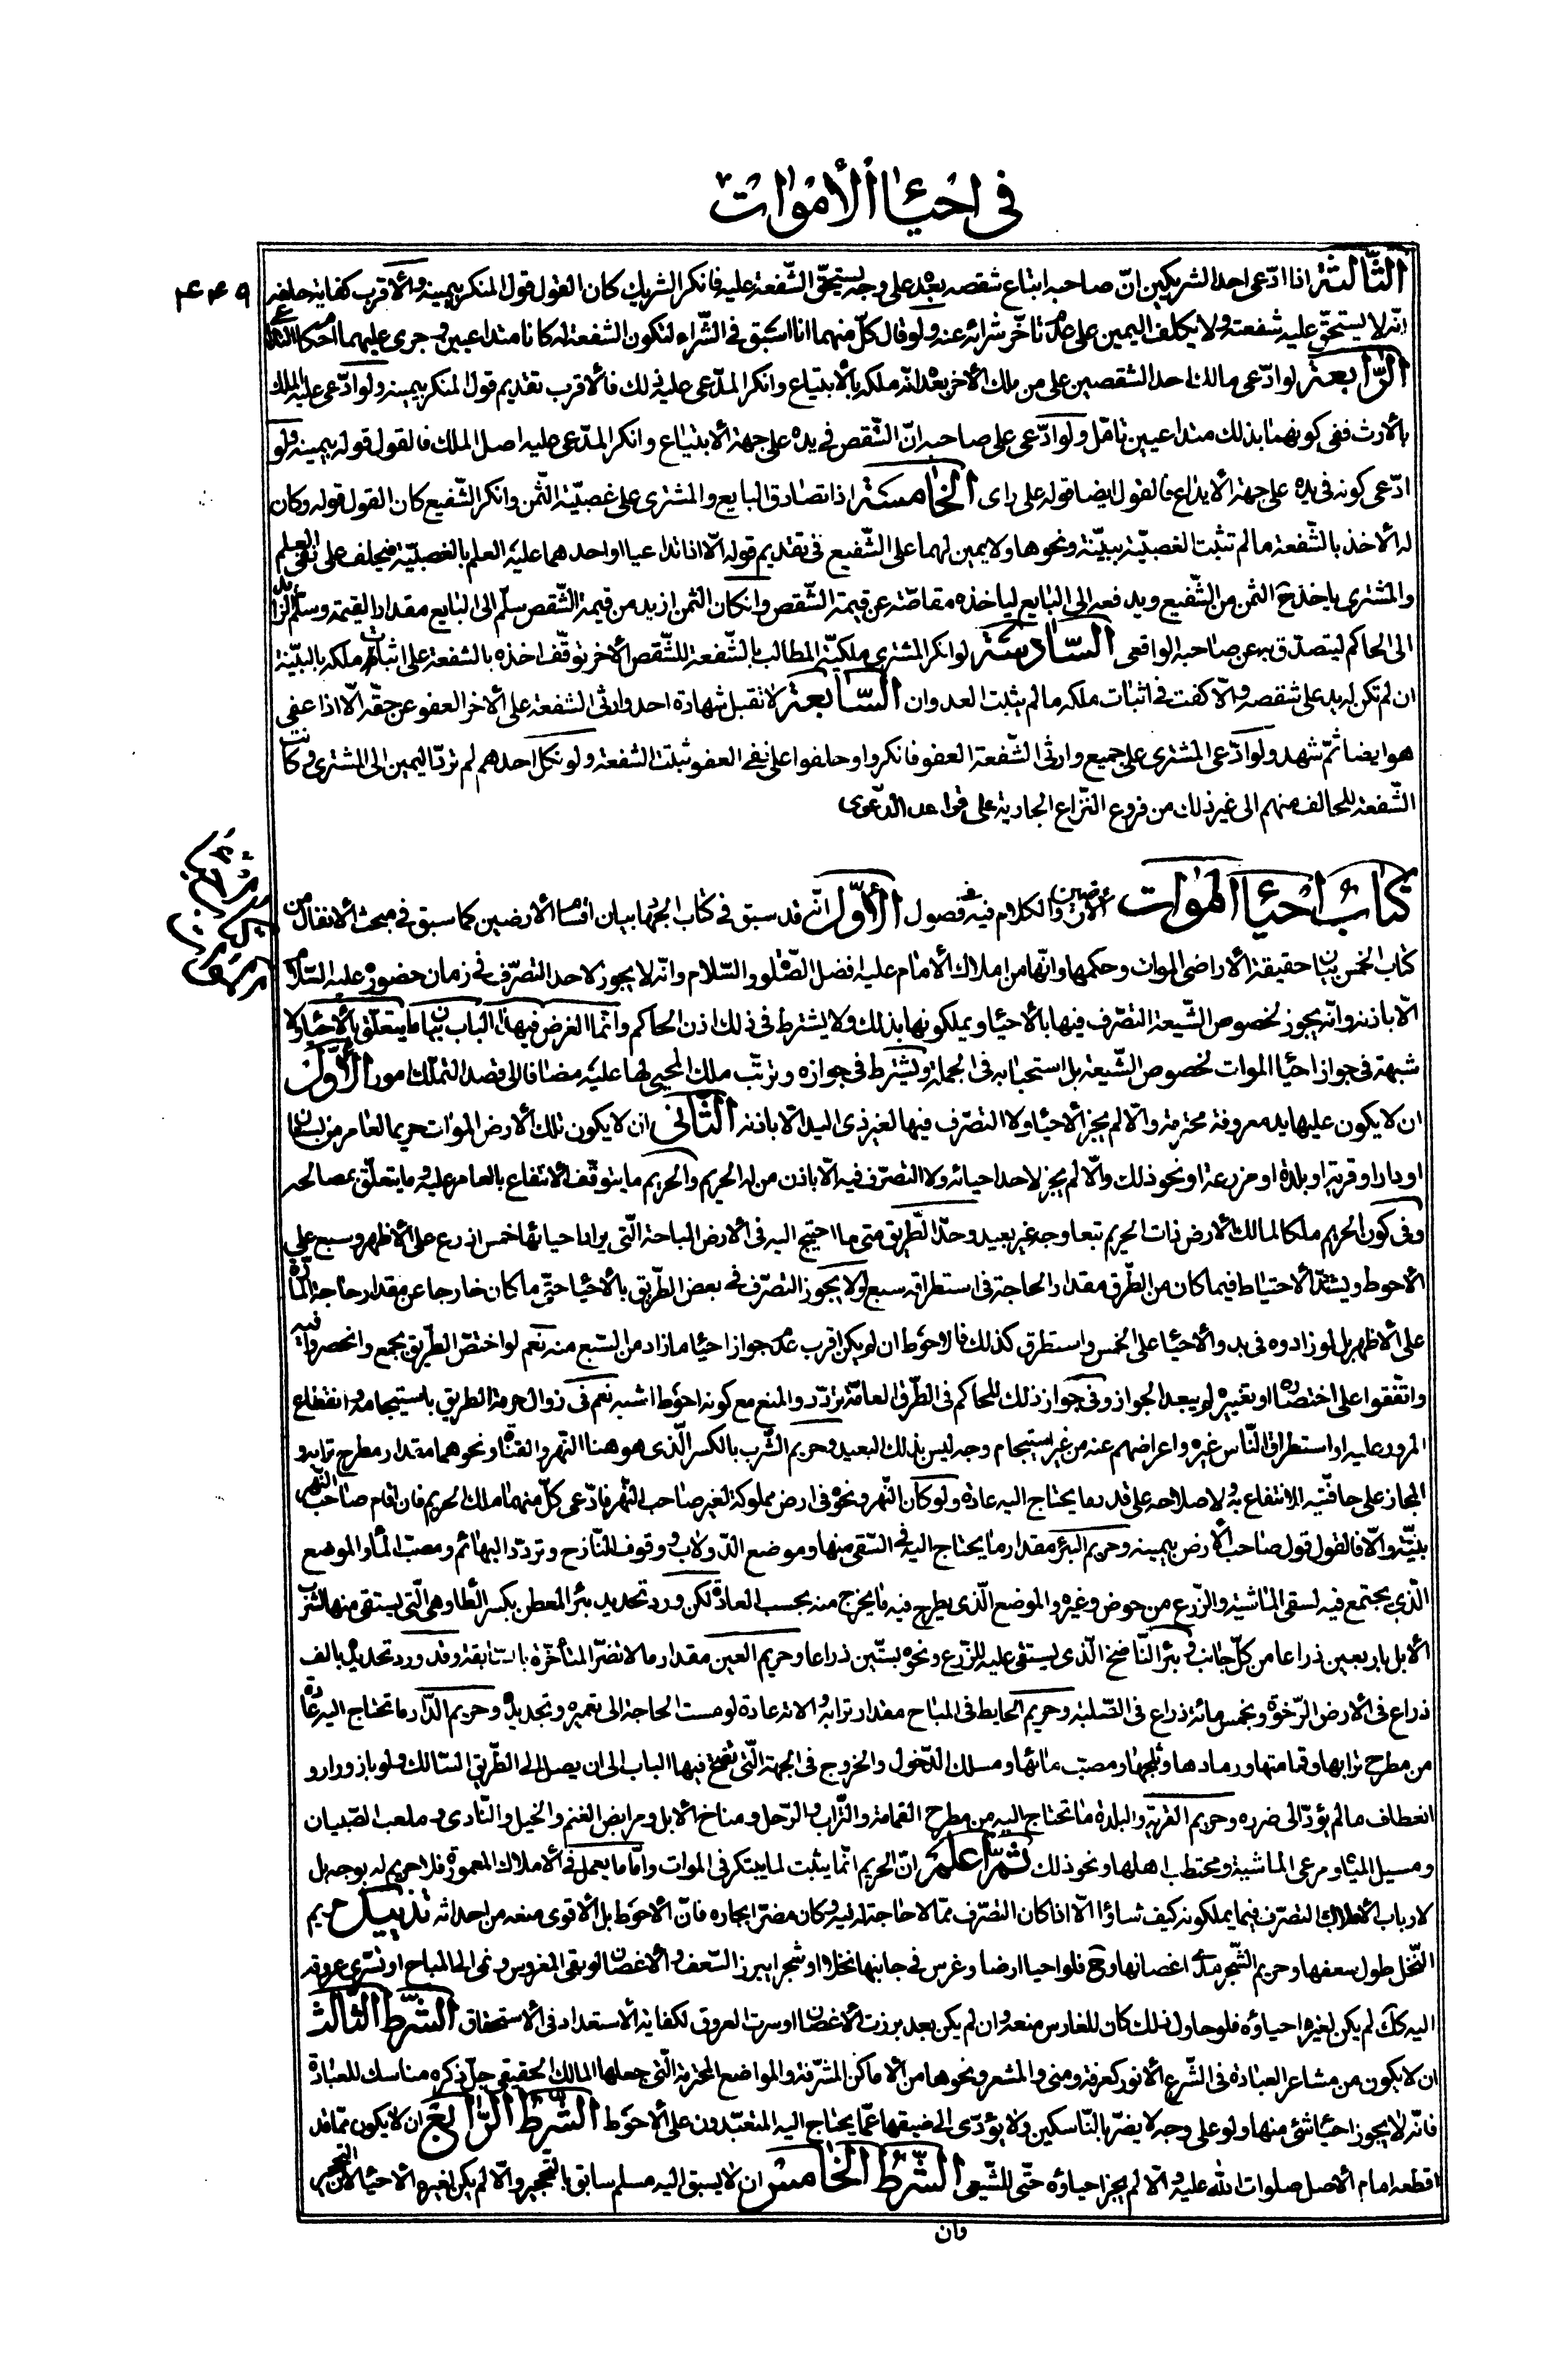 في احياء الأموات
٤٤٩
الثالثة اذا ادّعى احد الشريكين انّ صاحبه ابتاع شقصه بعده على وجه يستحقّ الشّفعة عليه فانكر الشريك كان القول قول المنكر بيمينه والأقرب كفاية حلفه
انّه لا يستحقّ عليه شفعته ولا يكلف اليمين على عدم تأخّر شرائه عنه ولو قال كلّ منهما انا اسبق في الشّراء لتكون الشفعة له كانا متداعيين وجرى عليهما احكام التداعى
الرّابعة لو ادّعى مالك احد الشقصين على من ملك الأخر بعد انّه ملكه بالأبتياع وانكر المدّعى عليه ذلك فالأقرب تقديم قول المنكر بيمينه ولو ادّعى عليه الملك
بالأرث ففى كونهما بذلك متداعيين تامّل ولو ادّعى على صاحبه انّ الشّقص في يده على جهة الأبتياع وانكر المدّعى عليه اصل الملك فالقول قوله بيمينه ولو
ادّعى كونه في يده على جهة الأيداع فالقول ايضا قوله على راى الخامسة اذا تصادق البايع والمشترى على غصبيّة الثّمن وانكر الشّفيع كان القول قوله وكان
له الأخذ بالشّفعة ما لم تثبت الغصبيّة ببيّنة ونحوها ولا يمين لهما على الشّفيع في تقديم قوله الّا اذا تداعيا او احدهما عليه العلم بالغصبيّة فيحلف على نفى العلم
والمشترى ياخذ ح الثمن من الشّفيع ويدفعه الى البايع لياخذه مقاصّة عن قيمة الشّقص وان كان الثمن ازيد من قيمة الشّقص سلّم الى البايع مقدار القيمة وسلّم الزايد
الى الحاكم ليتصدّق به عن صاحبه الواقعى السّادسة لو انكر المشترى ملكيّة المطالب بالشّفعة للشّقص الأخر توقّف اخذه بالشفعة على اثبات ملكه بالبيّنة
ان لم تكن له يد على شقصه والّا كفت في اثبات ملكه ما لم يثبت العدوان السّابعة لا تقبل شهادة احد وارثى الشفعة على الأخر العفو عن حقّه الّا اذا عفى
هو ايضا ثمّ شهد ولو ادّعى المشترى على جميع وارثى الشّفعة العفو فانكروا وحلفوا على نفى العفو ثبتت الشفعة ولو نكل احدهم لم تردّ اليمين الى المشترى وكانت
الشّفعة للحالف منهم الى غير ذلك من فروع النّزاع الجارية على قواعد الدّعوى
كتاب احياء الموات من الأرضين والكلام فيه في فصول الأوّل انّه قد سبق في كتاب الجهاد بيان اقسام الأرضين كما سبق في مبحث الأنفال من
كتاب الخمس بيان حقيقة الأراضى الموات وحكمها وانّها من املاك الأمام عليه افضل الصّلوة والسّلام وانّه لا يجوز لاحد التصرّف في زمان حضوره عليه السّلام
الّا باذنه وانّه يجوز لخصوص الشّيعة التصّرف فيها بالأحياء ويملكونها بذلك ولا يشترط في ذلك اذن الحاكم وانّما الغرض فيهذا الباب بيان ما يتعلّق بالأحياء ولا
شبهة في جواز احياء الموات لخصوص الشّيعة بل استحبابه في الجملة ويشترط في جوازه وترتّب ملك المحيى لها عليه مضافا الى قصد التملّك امور الأوّل
ان لا يكون عليها يد معروفة محترمة والّا لم يجز الأحياء ولا التصرّف فيها لغير ذى اليد الّا باذنه الثّانى ان لا يكون تلك الأرض الموات حريما لعامر من بستان
او دار او قرية او بلدة او مزرعة او نحو ذلك والّا لم يجز لاحد احيائه ولا التصرّف فيه الّا باذن من له الحريم والحريم ما يتوقّف الأنتفاع بالعامر عليه وما يتعلّق بمصالحه
وفى كون الحريم ملكا لمالك الأرض ذات الحريم تبعا وجه غير بعيد وحدّ الطّريق متى ما احتيج اليه في الأرض المباحة الّتى يراد احيائها خمس اذرع على الأظهر وسبع على
الأحوط ويشتدّ الأحتياط فيما كان من الطّرق مقدار الحاجة في استطراقه سبع ولا يجوز التصرّف في بعض الطّريق بالأحياء حتّى ما كان خارجا عن مقدار حاجة المارّة
على الأظهر بل لو زادوه في بدو الأحياء على الخمس واستطرق كذلك فالاحوط ان لم يكن اقرب عدم جواز احياء ما زاد من السّبع منه نعم لو اختصّ الطّريق بجمع وانحصروا فيه
واتّفقوا على اختصاره او تغييره لم يبعد الجواز وفى جواز ذلك للحاكم في الطّرق العامّة تردّد والمنع مع كونه احوط اشبه نعم في زوال حرمة الطريق باستيجامه وانقطاع
المرور عليه او استطراق النّاس غيره واعراضهم عنه من غير استيجام وجه ليس بذلك البعيد وحريم الشّرب بالكسر الّذى هو هنا النّهر والقناة ونحوهما مقدار مطرح ترابه و
المجاز على حافّتيه للانتفاع به ولاصلاحه على قدر ما يحتاج اليه عادة ولو كان النّهر ونحوه في ارض مملوكة لغير صاحب النّهر فادّعى كلّ منهما ملك الحريم فان اقام صاحب النّهر
بيّنة والّا فالقول قول صاحب الأرض بيمينه وحريم البئر مقدار ما يحتاج اليه في السّقى منها وموضع الدّولاب ووقوف النّازح وتردّد البهائم ومصبّ الماء والموضع
الّذى يجتمع فيه لسقى الماشية والزّرع من حوض وغيره والموضع الّذى يطرح فيه ما يخرج منه بحسب العادة لكن ورد تحديد بئر المعطن بكسر الطاء وهى الّتى يستقى منها لشرب
الأبل باربعين ذراعا من كلّ جانب وبئر النّاضح الّذى يستقى عليه للزّرع ونحوه بستّين ذراعا وحريم العين مقدار ما لا تضرّ المتأخّرة بالسّابقة وقد ورد تحديده بالف
ذراع في الأرض الرّخوة وبخمس مائة ذراع في الصّلبة وحريم الحايط في المباح مقدار ترابه والاته عادة لو مست الحاجة الى تعميره وتجديده وحريم الدّار ما تحتاج اليه عادة
من مطرح ترابها وقمامتها ورمادها وثلجها ومصبّ مائها ومسلك الدّخول والخروج في الجهة الّتى تفتح فيها الباب الى ان يصل الى الطّريق السّالك ولو بازورار و
انعطاف ما لم يؤدّ الى ضرره وحريم القرية والبلدة ما تحتاج اليه من مطرح القمامة والتّراب والرّحل ومناخ الأبل ومرابض الغنم والخيل والنّادى وملعب الصّبيان
ومسيل المياه ومرعى الماشية ومحتطب اهلها ونحو ذلك ثمّ اعلم انّ الحريم انّما يثبت لما يبتكر في الموات وامّا ما يعمل في الأملاك المعمورة فلا حريم له بوجه بل
لارباب الأملاك التصرّف فيما يملكونه كيف شاؤا الّا اذا كان التصرّف ممّا لا حاجة له فيه وكان مضرّا بجاره فانّ الأحوط بل الأقوى منعه من احداثه تذييل حريم
النّخل طول سعفها وحريم الشّجر مدّ اغصانها وح فلو احيا ارضا وغرس في جانبها نخلا او شجرا يبرز السّعف والأغصان لو بقى المغروس ونمى الى المباح او تسرى عروقه
اليه كك لم يكن لغيره احياؤه فلو حاول ذلك كان للغارس منعه وان لم يكن بعد برزت الأغصان او سرت العروق لكفاية الأستعداد في الأستحقاق الشّرط الثالث
ان لا يكون من مشاعر العبادة في الشّرع الأنور كعرفة ومنى والمشعر ونحوها من الأماكن المشرّفة والمواضع المحترمة الّتى جعلها المالك الحقيقى جلّ ذكره مناسك للعبادة
فانّه لا يجوز احياء شئ منها ولو على وجه لا يضرّ بالنّاسكين ولا يؤدّى الى ضيقها عمّا يحتاج اليه المتعبّدون على الأحوط الشّرط الرّابع ان لا يكون ممّا قد
اقطعه امام الأصل صلوات الله عليه والّا لم يجز احياؤه حتّى للشّيعى الشّرط الخامس ان لا يسبق اليه مسلم سابق بالتحجير والّا لم يكن لغيره الأحياء لأنّ التحجير
وان